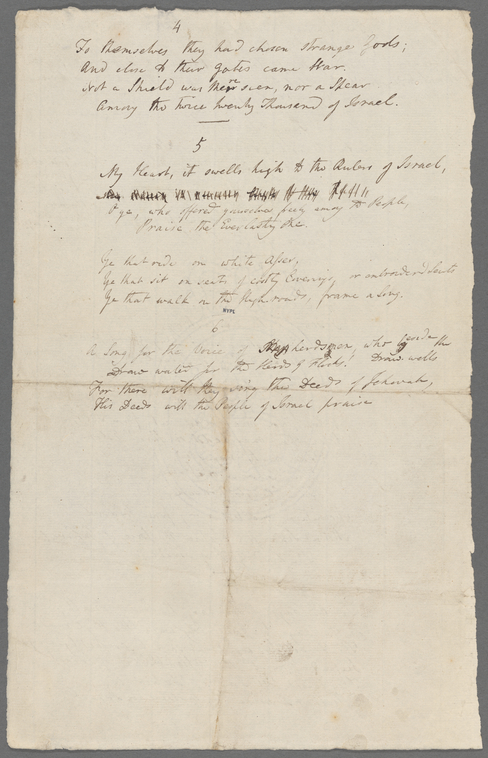 4
To themselves they had chosen strange Gods;
And close to their gates came War.
Not a Shield was there seen, nor a Spear
Among the twice twenty Thousand of Israel.
5
My Heart, it swells high to the Rulers of Israel,
O ye, who offered yourselves freely among the People,
Praise the Everlasting One.
Ye that rode on white Asses,
Ye that sit on seats of costly Coverings, or embroidered Seats
Ye that walk on the high roads, frame a Song.
NYPL
6
A Song for the Voice of Shepherdsmen, who beside the
Draw water for the Herds & Flocks. Draw-wells
For there will they sing the Deeds of Jehovah,
His Deeds will the People of Israel praise